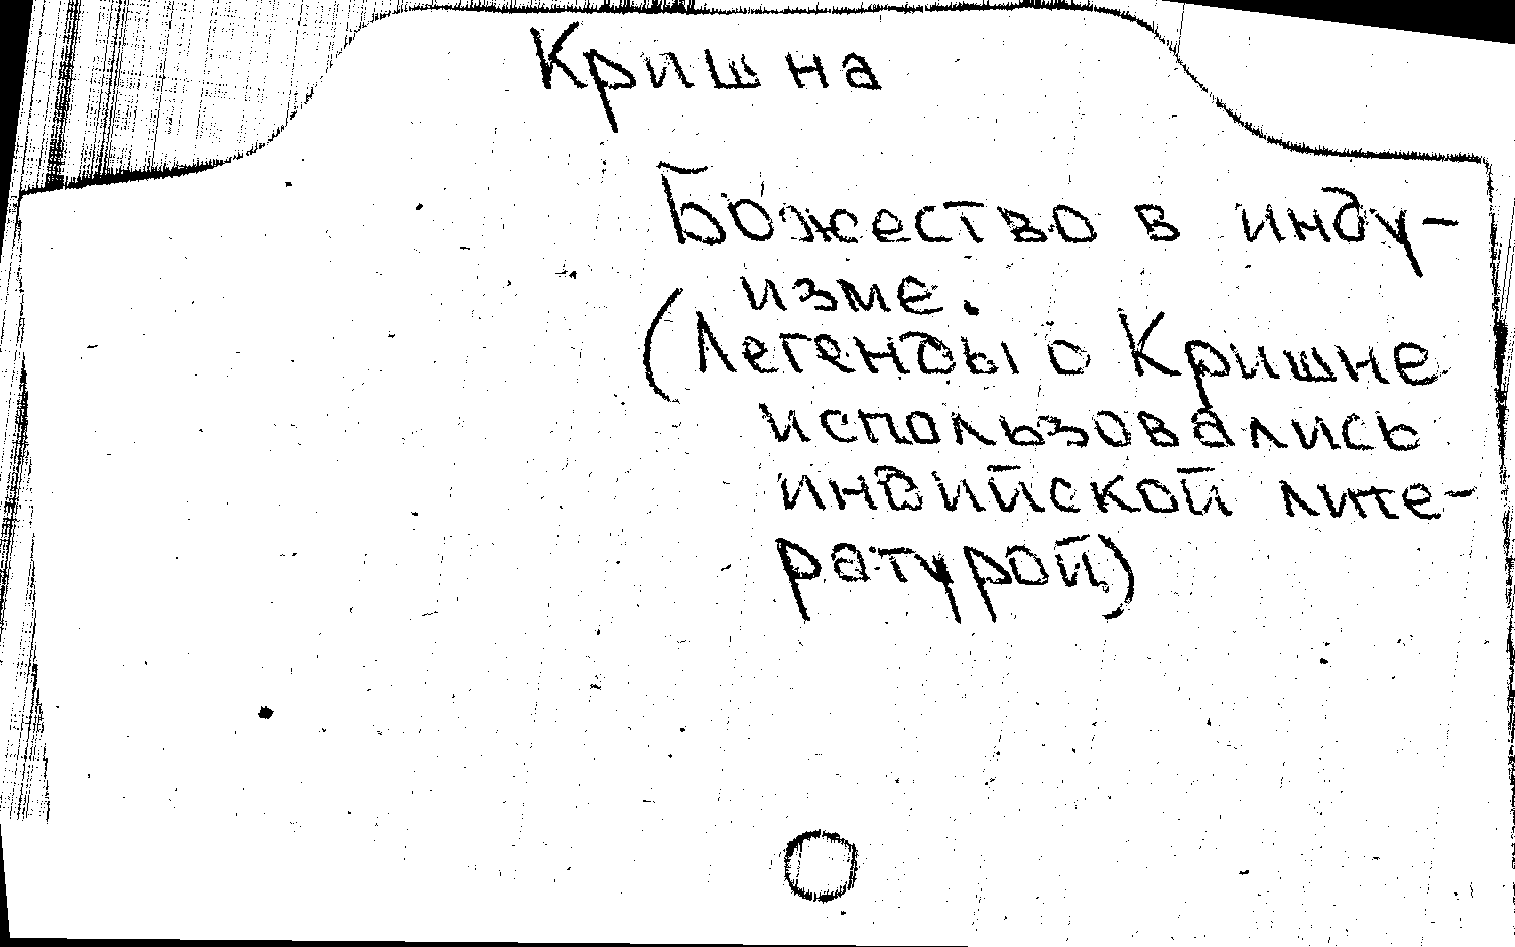 Кришна
Божество в инду-
изме.
(Легенды о Кришне
использовались
индийской лите-
ратурой)